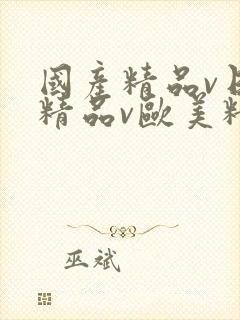 國產精品v
精品v歐美
巫斌